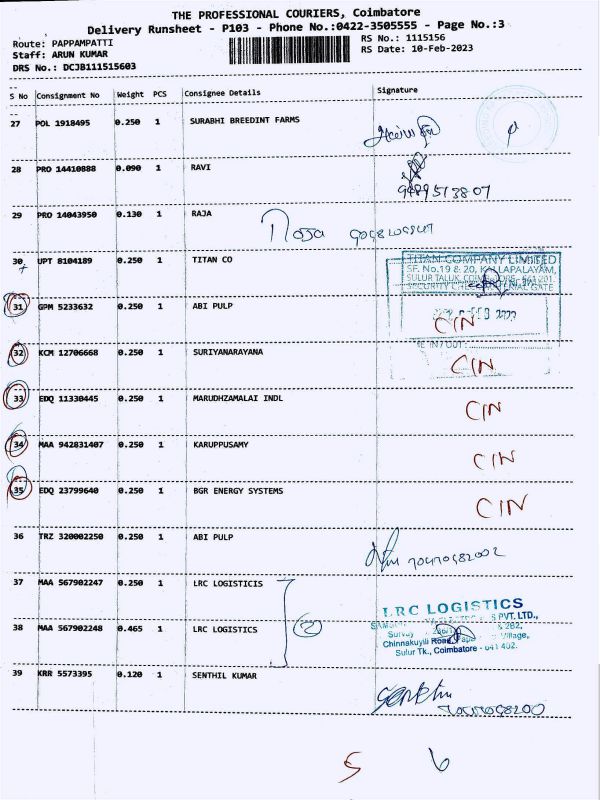 THE PROFESSIONAL COURIERS, Coimbatore
Delivery Runsheet - P103 - Phone No.:0422-3505555 - Page No.:3
Route: PAPPAMPATTI
RS No.: 1115156
Staff: ARUN KUMAR
RS Date: 10-Feb-2023
DRS No.: DCJB111515603
S No Consignment No Weight PCS Consignee Details Signature
27 POL 1918495 0.250 1 SURABHI BREEDINT FARMS
28 PRO 14410888 0.090 1 RAVI
9489513807
29 PRO 14043950 0.130 1 RAJA
30 UPT 8104189 0.250 1 TITAN CO
TITAN COMPANY LIMITED
SF. No.19 & 20, KALLAPALAYAM,
SULUR TALUK, COIMBATORE - 641 201.
SECURITY
GATE
31 GPM 5233632 0.250 1 ABI PULP CIN
32 KCM 12706668 0.250 1 SURIYANARAYANA CIN
33 EDQ 11330445 0.250 1 MARUDHZAMALAI INDL CIN
34 MAA 942831407 0.250 1 KARUPPUSAMY CIN
35 EDQ 23799640 0.250 1 BGR ENERGY SYSTEMS CIN
36 TRZ 320002250 0.250 1 ABI PULP
37 MAA 567902247 0.250 1 LRC LOGISTICIS
38 MAA 567902248 0.465 1 LRC LOGISTICS
2
LRC LOGISTICS
PVT. LTD.,
Survey
Chinnakuyili Road, Village,
Sulur Tk., Coimbatore - 641 402.
39 KRR 5573395 0.120 1 SENTHIL KUMAR
5 6